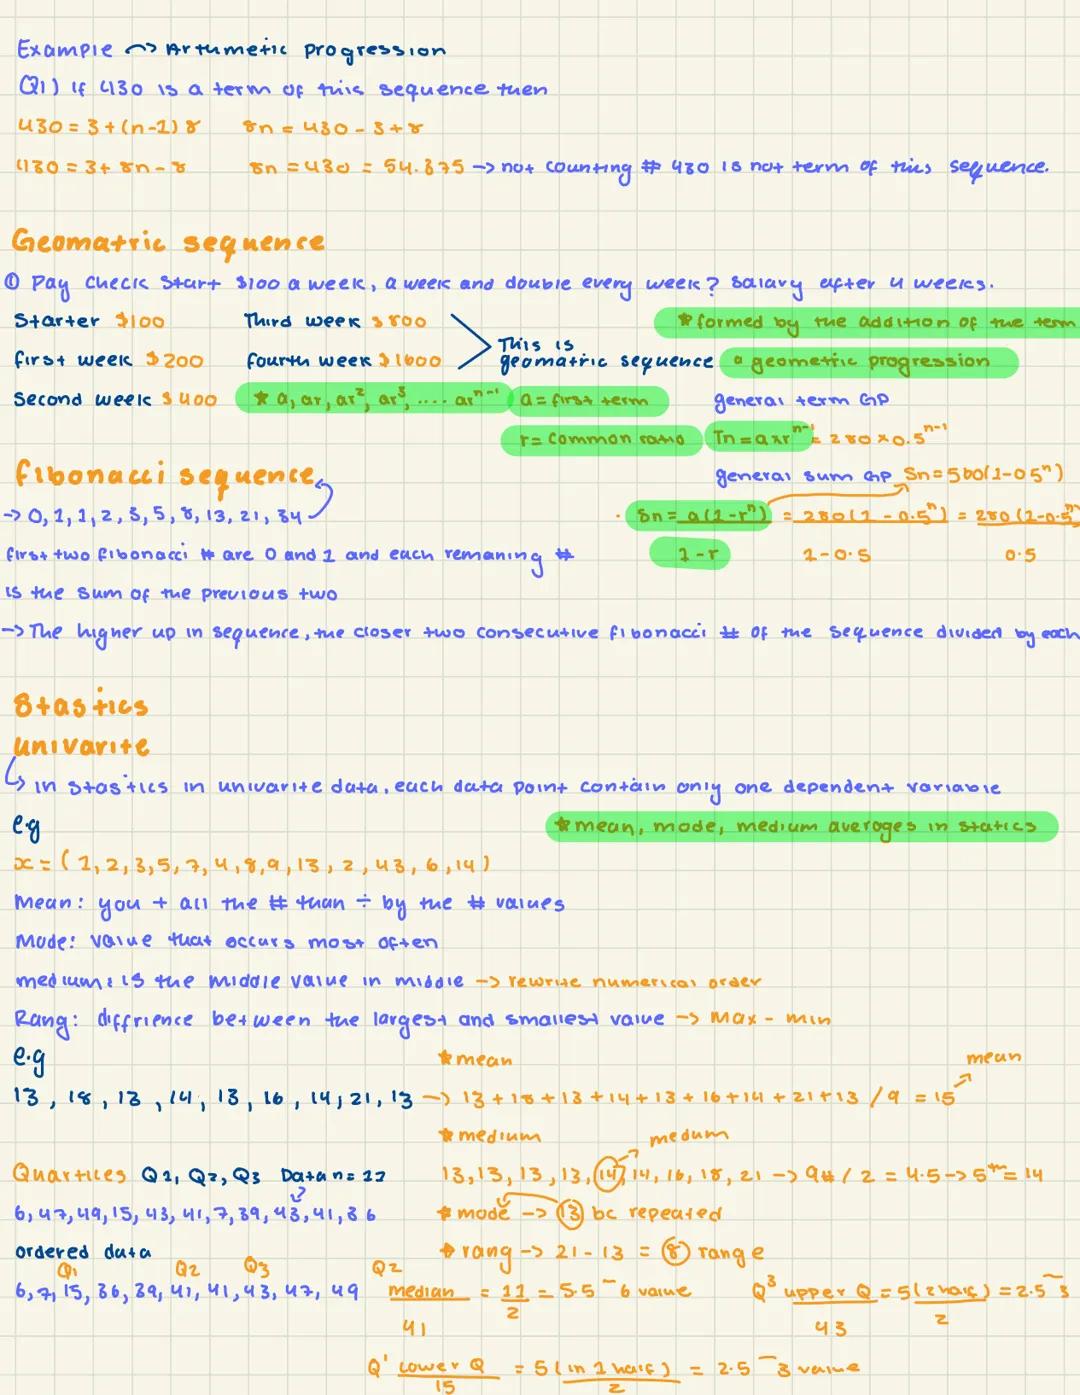 Example ~> Artumetic progression
Q1) if 430 is a term of this sequence then
430 = 3+(n-1) 8    8n = 430 - 3+8
430 = 3+ 8n - 8    8n = 430 = 54.375 -> not counting # 430 is not term of this sequence.
Geomatric sequence
① Pay check start $100 a week, a week and double every week? Salary after 4 weeks.
Starter $100    Third week $800    * formed by the addition of the term
first week $200    fourth week $1600    This is geomatric sequence    a geometric progression
Second week $400    * a, ar, ar², ar³, .... arⁿ⁻¹    a = first term    general term GP
r = common ratio    Tn = axrⁿ⁻¹ = 280 x 0.5ⁿ⁻¹
fibonacci sequence    general sum GP Sn = 560(1-05ⁿ)
-> 0, 1, 1, 2, 3, 5, 8, 13, 21, 34    . Sn = a(1-rⁿ) = 280(1 - 0.5ⁿ) = 280 (1-0.5ⁿ
first two fibonacci # are 0 and 1 and each remaning #    1-r    1-0.5    0.5
is the sum of the previous two
-> The higher up in sequence, the closer two consecutive fibonacci # of the sequence divided by each
Stastics
univarite
↳ in stastics in univarite data, each data point contain only one dependent variable
eg    * mean, mode, medium averages in statics
x = ( 1, 2, 3, 5, 7, 4, 8, 9, 13, 2, 43, 6, 14 )
Mean: you + all the # than ÷ by the # values
Mode: value that occurs most often
medium: is the middle value in middle -> rewrite numerical order
Rang: diffrience between the largest and smallest value -> Max - min
e.g    * mean    mean
13, 18, 13, 14, 13, 16, 14, 21, 13 -> 13 + 18 + 13 + 14 + 13 + 16 + 14 + 21 + 13 / 9 = 15
* medium    medum
Quartices Q1, Q2, Q3 Data n = 11    13, 13, 13, 13, 14, 14, 16, 18, 21 -> 9# / 2 = 4.5 -> 5ᵗʰ = 14
6, 47, 49, 15, 43, 41, 7, 39, 43, 41, 36    * mode -> 13 bc repeated
ordered data    * rang -> 21 - 13 = 8 range
Q1    Q2    Q3    Q2
6, 7, 15, 36, 39, 41, 41, 43, 47, 49    median = 11 = 5.5 ~ 6 value    Q³ upper Q = 5(2 half) = 2.5 ~ 3
41    2    43    2
Q' lower Q = 5 (in 1 half) = 2.5 ~ 3 value
15    2